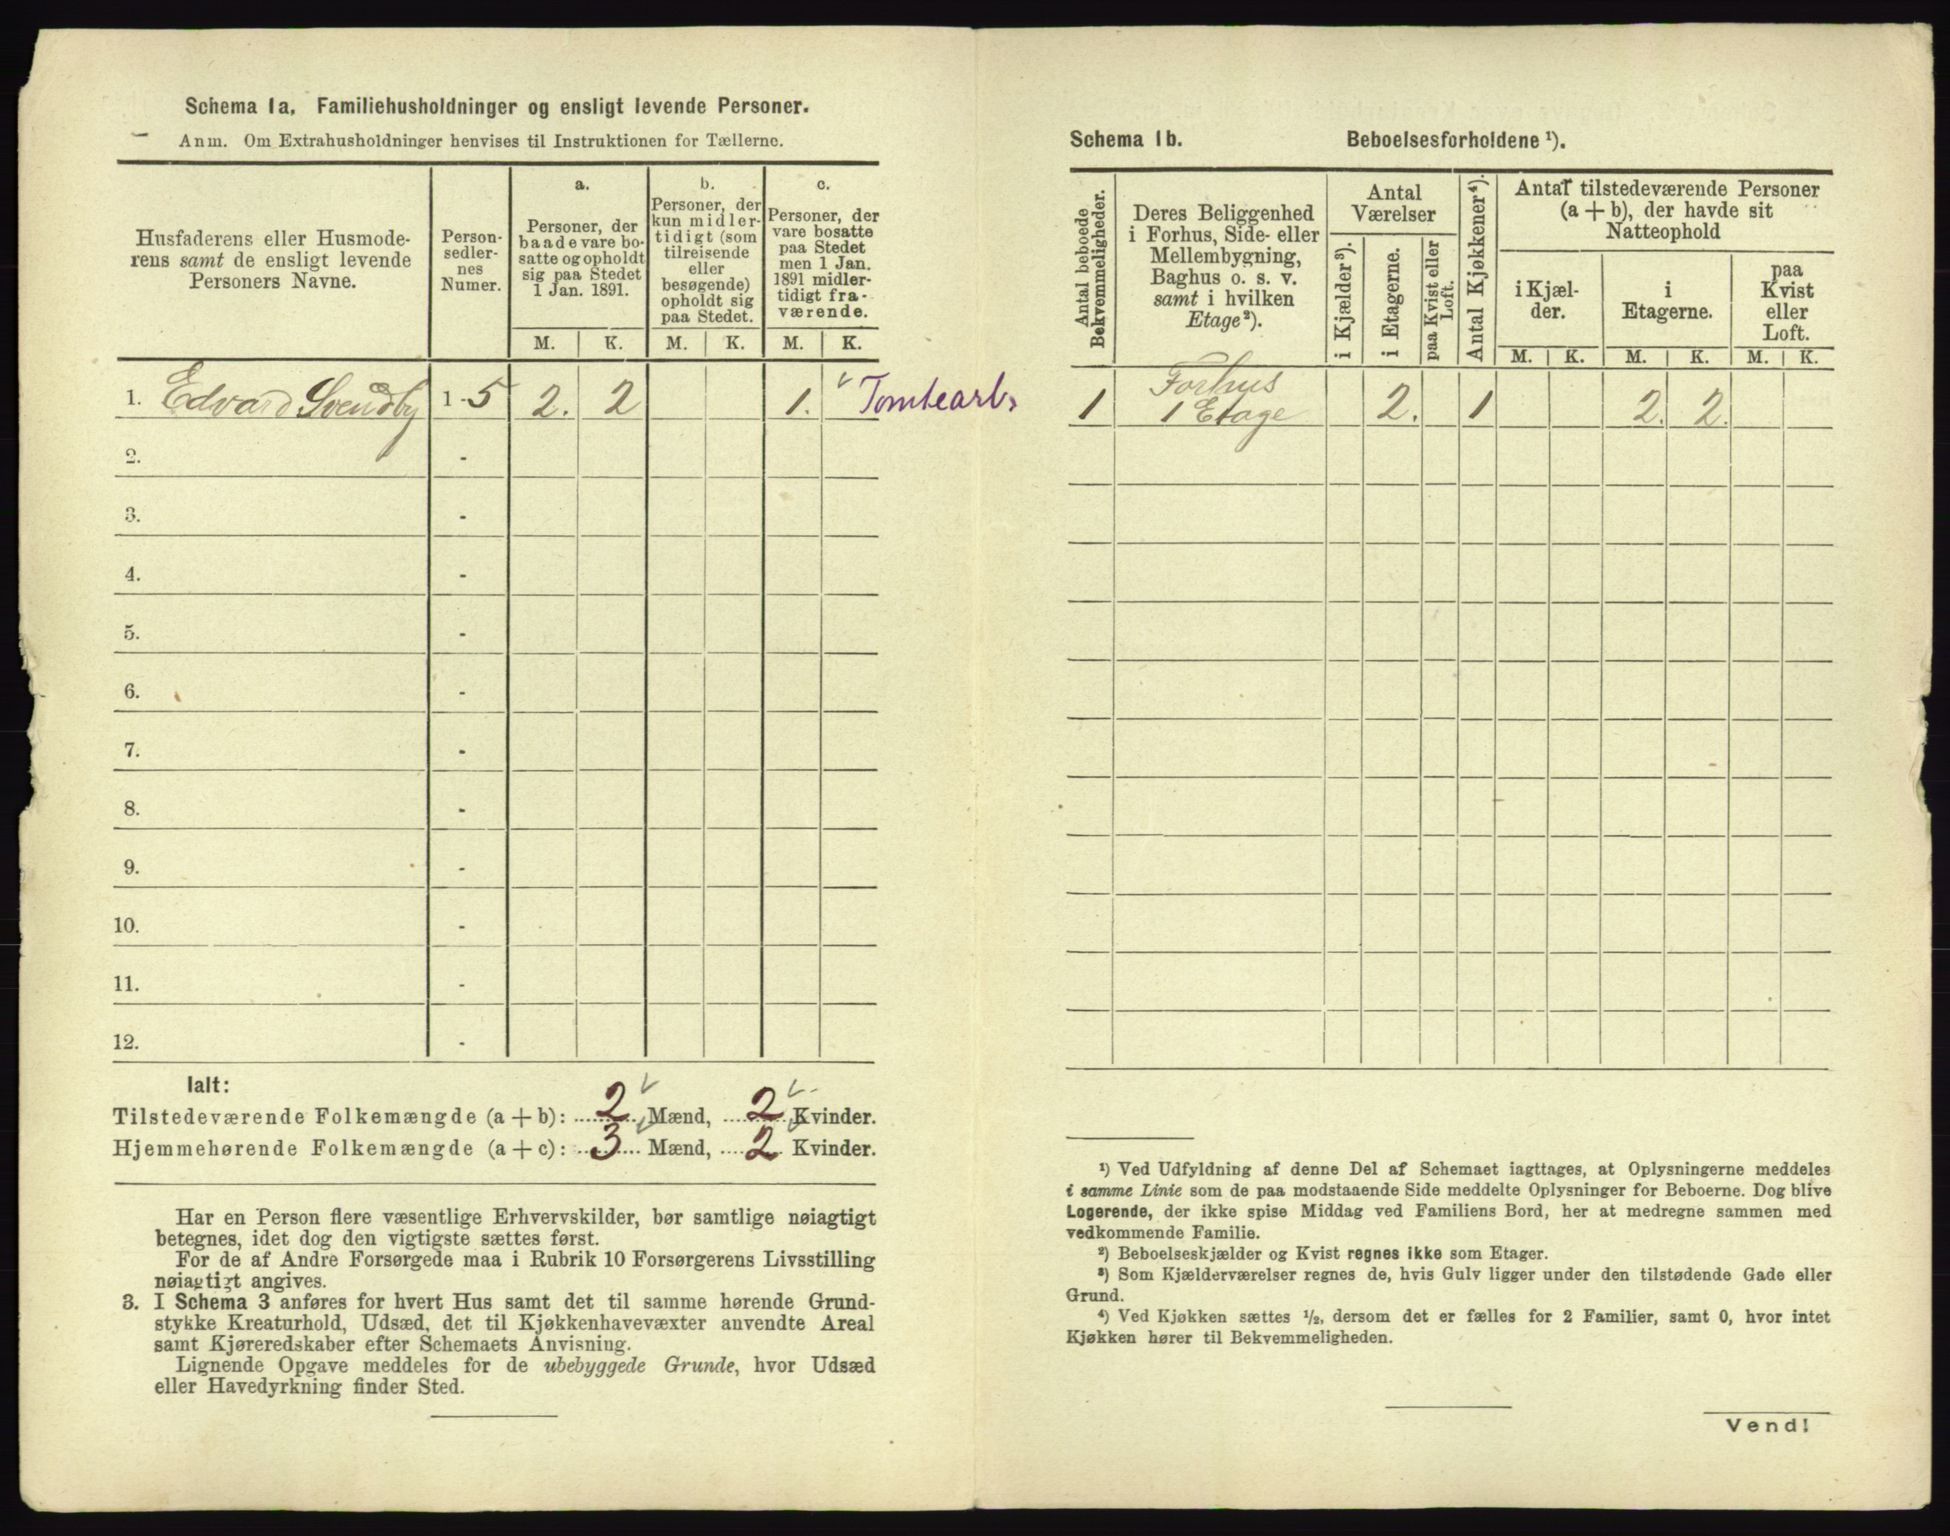 Schema 1a. Familiehusholdninger og ensligt levende Personer.
Anm. Om Extrahusholdninger henvises til Instruktionen for Tællerne.
Husfaderens eller Husmode-
rens samt de ensligt levende
Personers Navne.
Person-
sedler-
nes
Numer.
a.
Personer, der
baade vare bo-
satte og opholdt
sig paa Stedet
1 Jan. 1891.
b.
Personer, der
kun midler-
tidigt (som
tilreisende
eller
besøgende)
opholdt sig
paa Stedet.
c.
Personer, der
vare bosatte
paa Stedet
men 1 Jan.
1891 midler-
tidigt fra-
værende.
M. K. M. K. M. K.
1. Edvard Svendby 1-5 2. 2 1. Tomtearb.
2. -
3. -
4. -
5. -
6. -
7. -
8. -
9. -
10. -
11. -
12. -
Ialt:
Tilstedeværende Folkemængde (a + b): 2 Mænd, 2 Kvinder.
Hjemmehørende Folkemængde (a + c): 3 Mænd, 2 Kvinder.
Har en Person flere væsentlige Erhvervskilder, bør samtlige nøiagtigt
betegnes, idet dog den vigtigste sættes først.
For de af Andre Forsørgede maa i Rubrik 10 Forsørgerens Livsstilling
nøiagtigt angives.
3. I Schema 3 anføres for hvert Hus samt det til samme hørende Grund-
stykke Kreaturhold, Udsæd, det til Kjøkkenhavevæxter anvendte Areal
samt Kjøreredskaber efter Schemaets Anvisning.
Lignende Opgave meddeles for de ubebyggede Grunde, hvor Udsæd
eller Havedyrkning finder Sted.
Schema 1b. Beboelsesforholdene ¹).
Antal beboede
Bekvemmeligheder.
Deres Beliggenhed
i Forhus, Side- eller
Mellembygning,
Baghus o. s. v.
samt i hvilken
Etage²).
Antal
Værelser
i Kjælder³).
i Etagerne.
paa Kvist eller
Loft.
Antal Kjøkkener⁴).
Antal tilstedeværende Personer
(a + b), der havde sit
Natteophold
i Kjæl-
der.
i
Etagerne.
paa
Kvist
eller
Loft.
M. K. M. K. M. K.
1 Forhus
1 Etage 2. 1 2. 2.
¹) Ved Udfyldning af denne Del af Schemaet iagttages, at Oplysningerne meddeles
i samme Linie som de paa modstaaende Side meddelte Oplysninger for Beboerne. Dog blive
Logerende, der ikke spise Middag ved Familiens Bord, her at medregne sammen med
vedkommende Familie.
²) Beboelseskjælder og Kvist regnes ikke som Etager.
³) Som Kjælderværelser regnes de, hvis Gulv ligger under den tilstødende Gade eller
Grund.
⁴) Ved Kjøkken sættes ½, dersom det er fælles for 2 Familier, samt 0, hvor intet
Kjøkken hører til Bekvemmeligheden.
Vend!